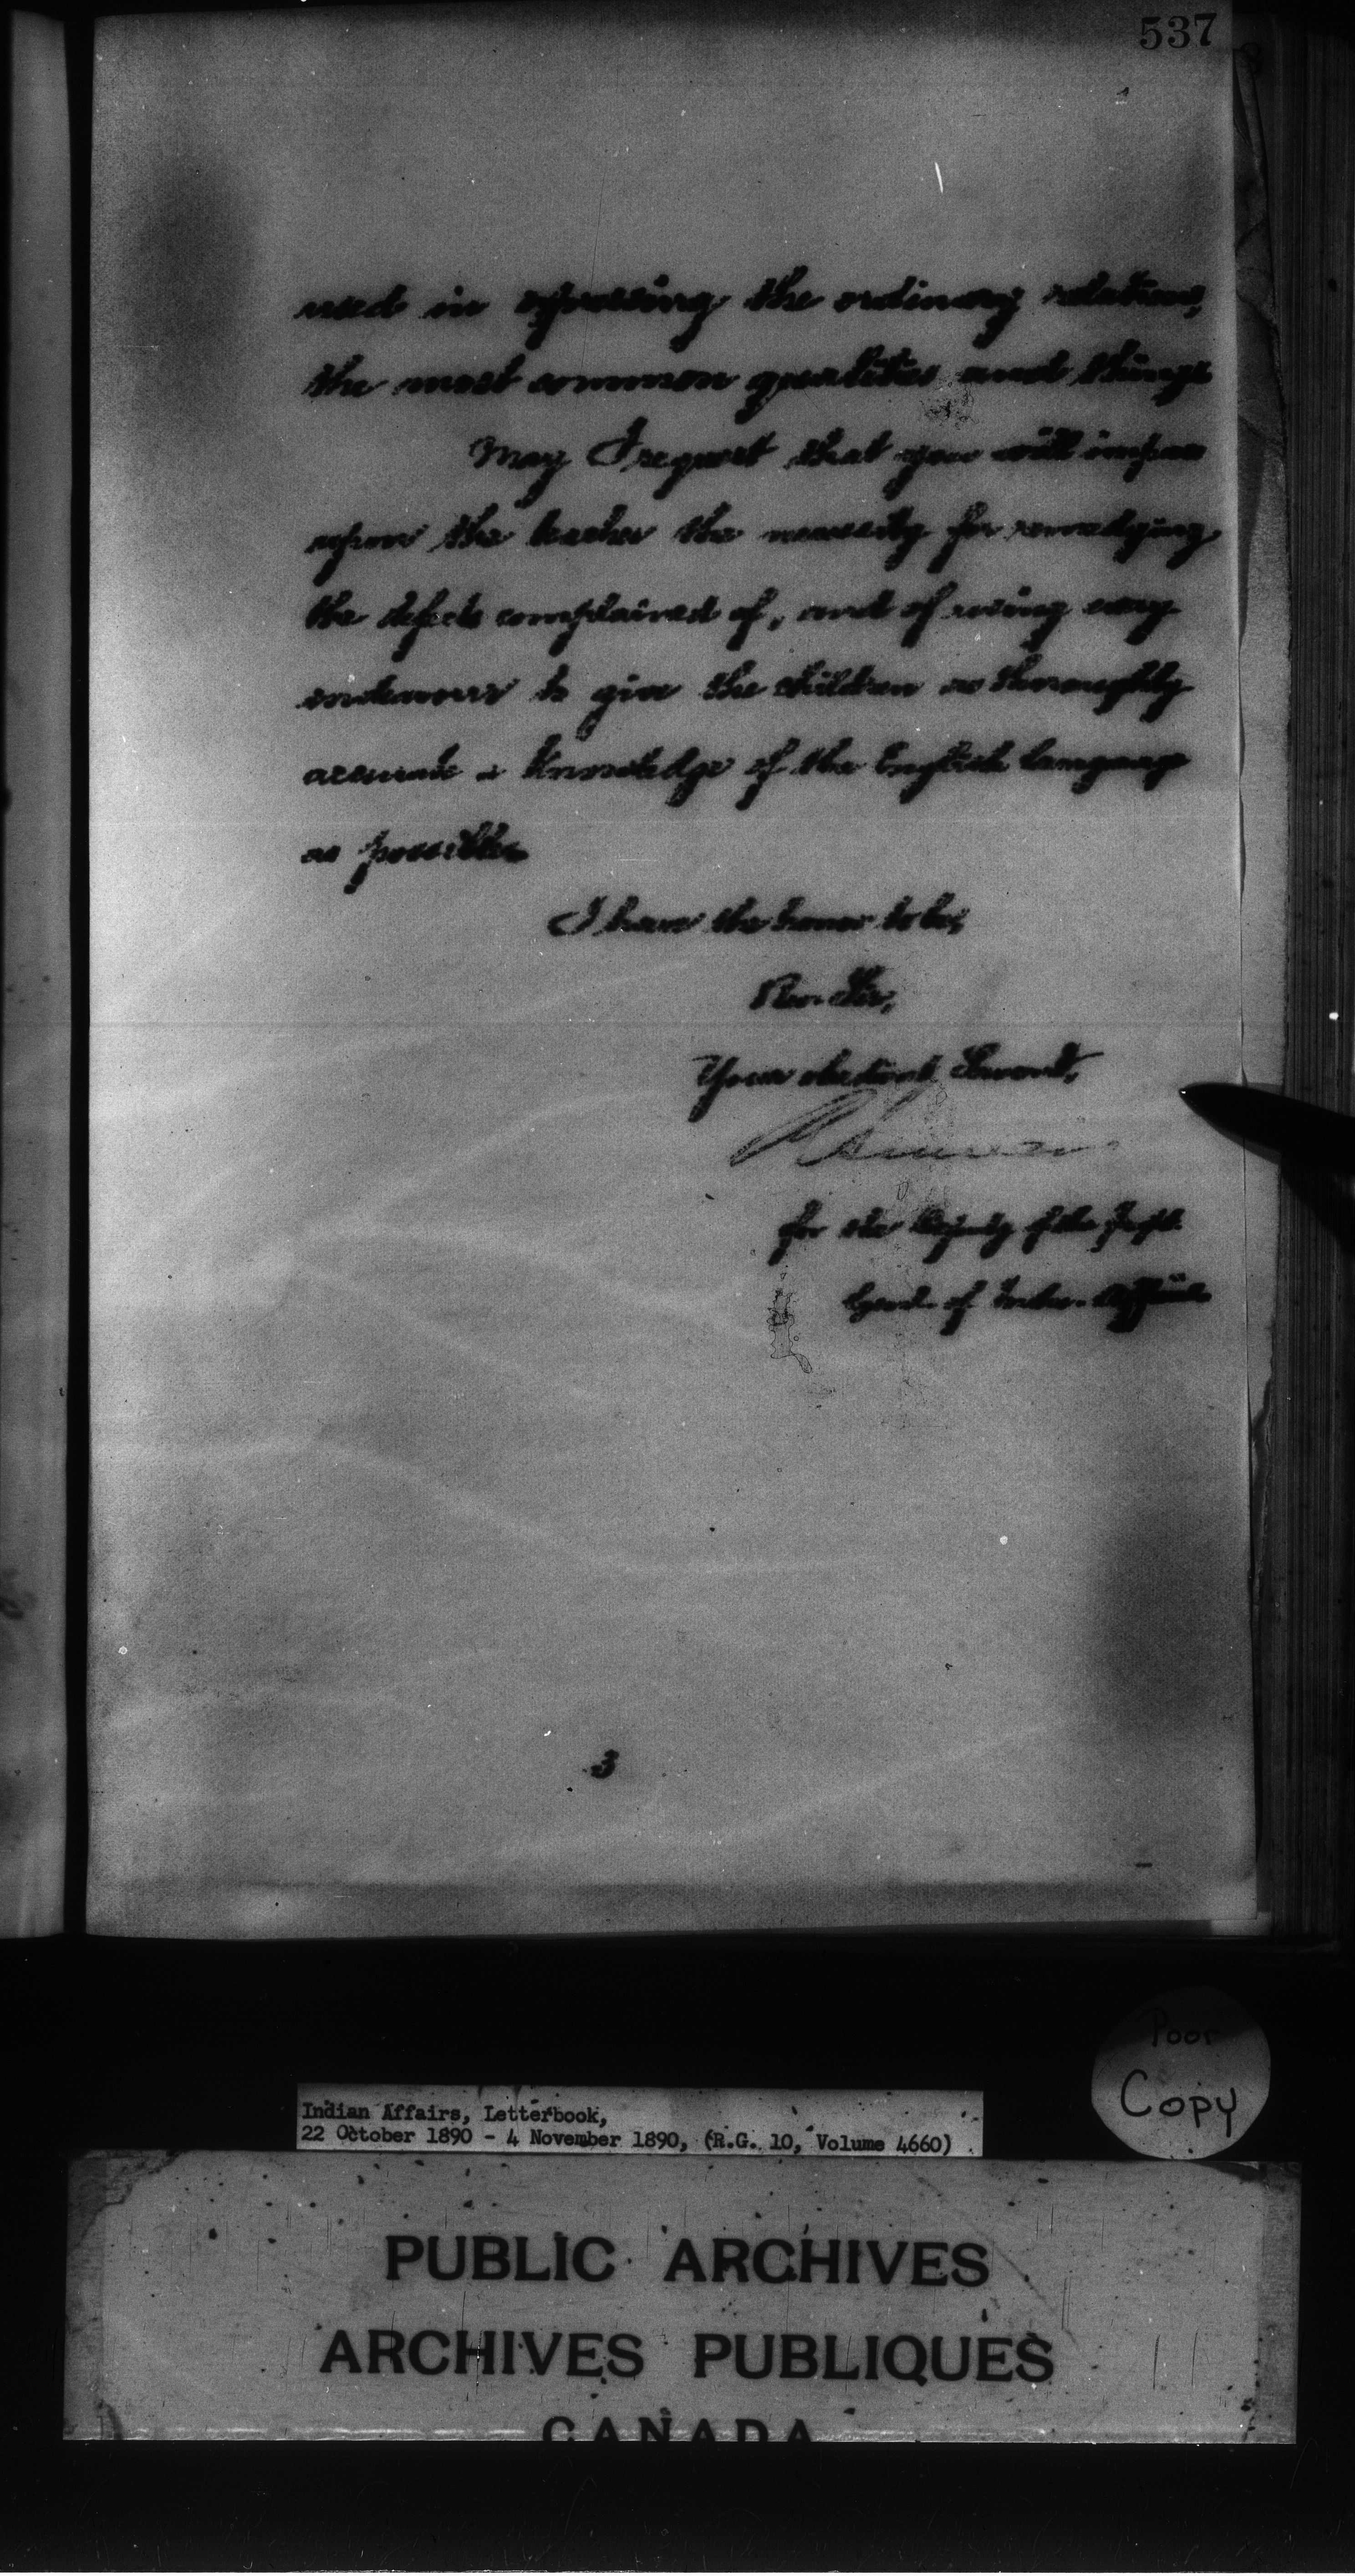 537
used in expressing the ordinary relations,
the most common qualities and things
May I request that you will impress
upon the teacher the necessity for remedying
the defects complained of, and of using every
endeavour to give the children as thoroughly
accurate a knowledge of the English language
as possible.
I have the honor to be,
Rev. Sir,
Your obedient Servant,
for the Deputy of the Supt.
Genl. of Indn. Affairs
3
Poor
Copy
Indian Affairs, Letterbook,
22 October 1890 - 4 November 1890, (R.G. 10, Volume 4660)
PUBLIC ARCHIVES
ARCHIVES PUBLIQUES
CANADA